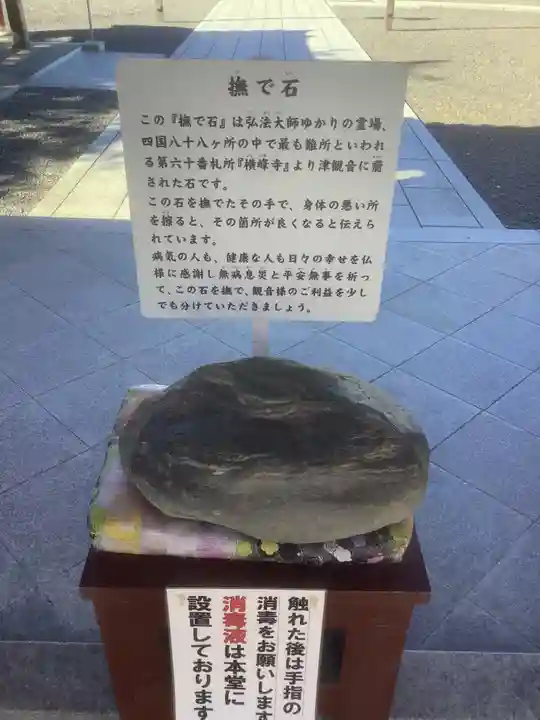 撫で石
この『撫で石』は弘法大師ゆかりの霊場、
四国八十八ヶ所の中で最も難所といわれ
る第六十番札所『横峰寺』より津観音に
された石です。
この石を撫でたその手で、身体の悪い所
を擦ると、その箇所が良くなると伝えら
れています。
病気の人も、健康な人も日々の幸せを仏
様に感謝し無病息災と平安無事を祈っ
て、この石を撫で、観音様のご利益を少し
でも分けていただきましょう。
触れた後は手指の
消毒をお願いします
消毒液は本堂に
設置しております